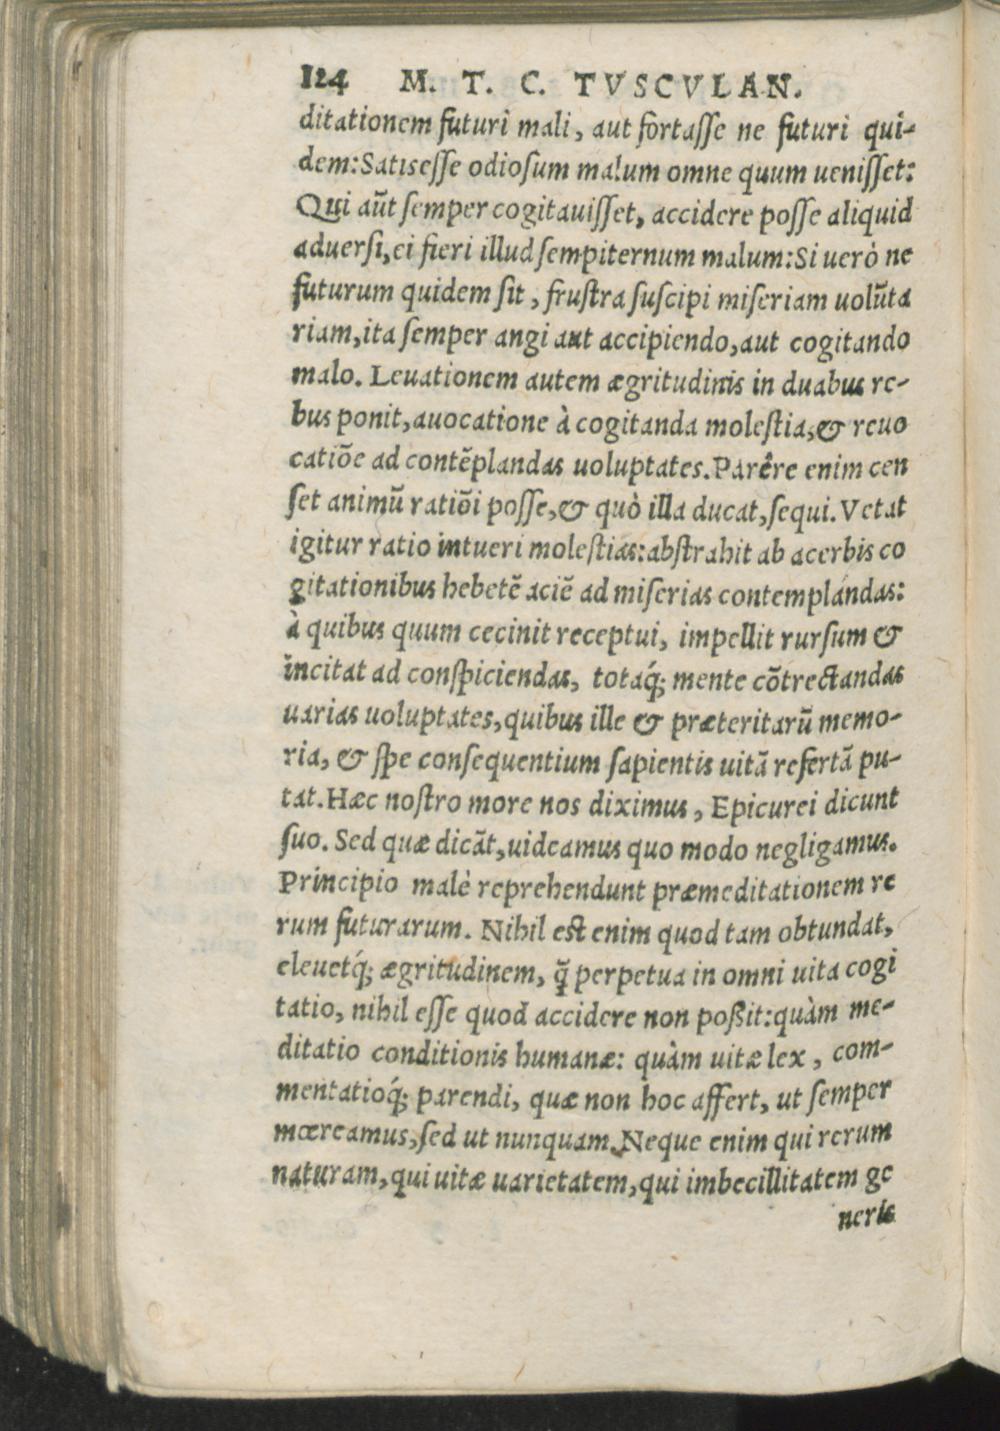 124 M. T. C. TVSCVLAN.
ditationem futuri mali, aut fortasse ne futuri qui-
dem: Satis esse odiosum malum omne quum uenisset:
Qui aūt semper cogitauisset, accidere posse aliquid
aduersi, ei fieri illud sempiternum malum: Si uerò ne
futurum quidem sit, frustra suscipi miseriam uolūta
riam, ita semper angi aut accipiendo, aut cogitando
malo. Leuationem autem ægritudinis in duabus re-
bus ponit, auocatione à cogitanda molestia, & reuo
catiōe ad contēplandas uoluptates. Parêre enim cen
set animū ratiōi posse, & quò illa ducat, sequi. Vetat
igitur ratio intueri molestias: abstrahit ab acerbis co
gitationibus hebetē aciē ad miserias contemplandas:
à quibus quum cecinit receptui, impellit rursum &
incitat ad conspiciendas, totáq; mente cōtrectandas
uarias uoluptates, quibus ille & præteritarū memo-
ria, & spe consequentium sapientis uitā refertā pu-
tat. Hæc nostro more nos diximus, Epicurei dicunt
suo. Sed quæ dicāt, uideamus quo modo negligamus.
Principio malè reprehendunt præmeditationem re
rum futurarum. Nihil est enim quod tam obtundat,
eleuetq́; ægritudinem, q̄ perpetua in omni uita cogi
tatio, nihil esse quod accidere non poßit: quàm me-
ditatio conditionis humanæ: quàm uitæ lex, com-
mentatioq́; parendi, quæ non hoc affert, ut semper
mœreamus, sed ut nunquam. Neque enim qui rerum
naturam, qui uitæ uarietatem, qui imbecillitatem ge
neris